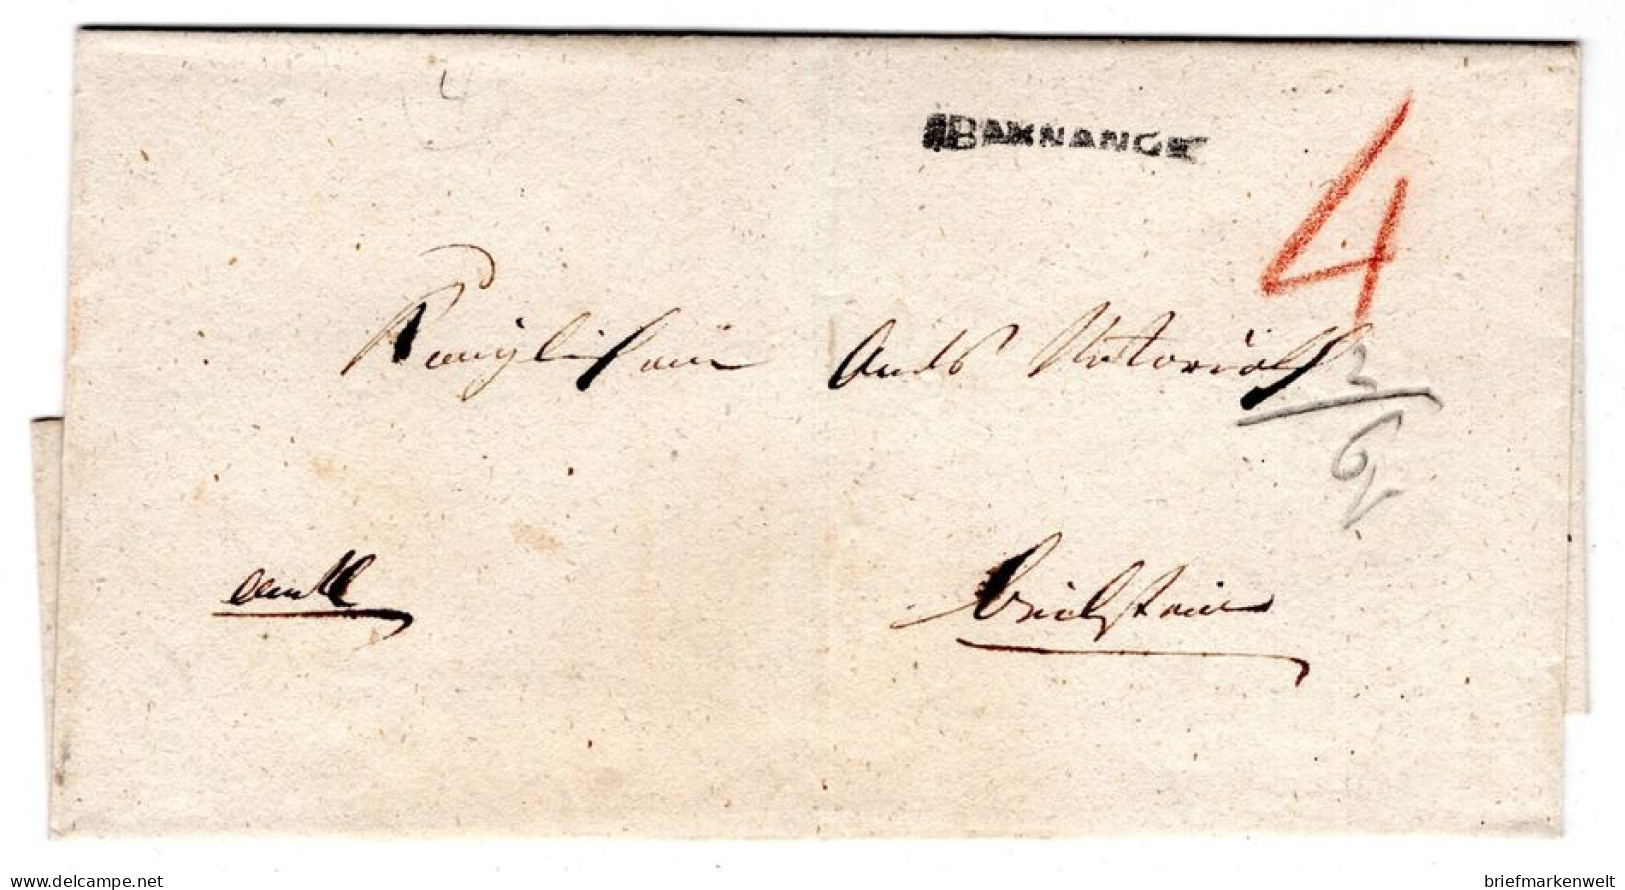 4
BAKNANG
4
Königlichem Amts Notariat
3
6
Beilstein
delcampe.net
briefmarkenwelt